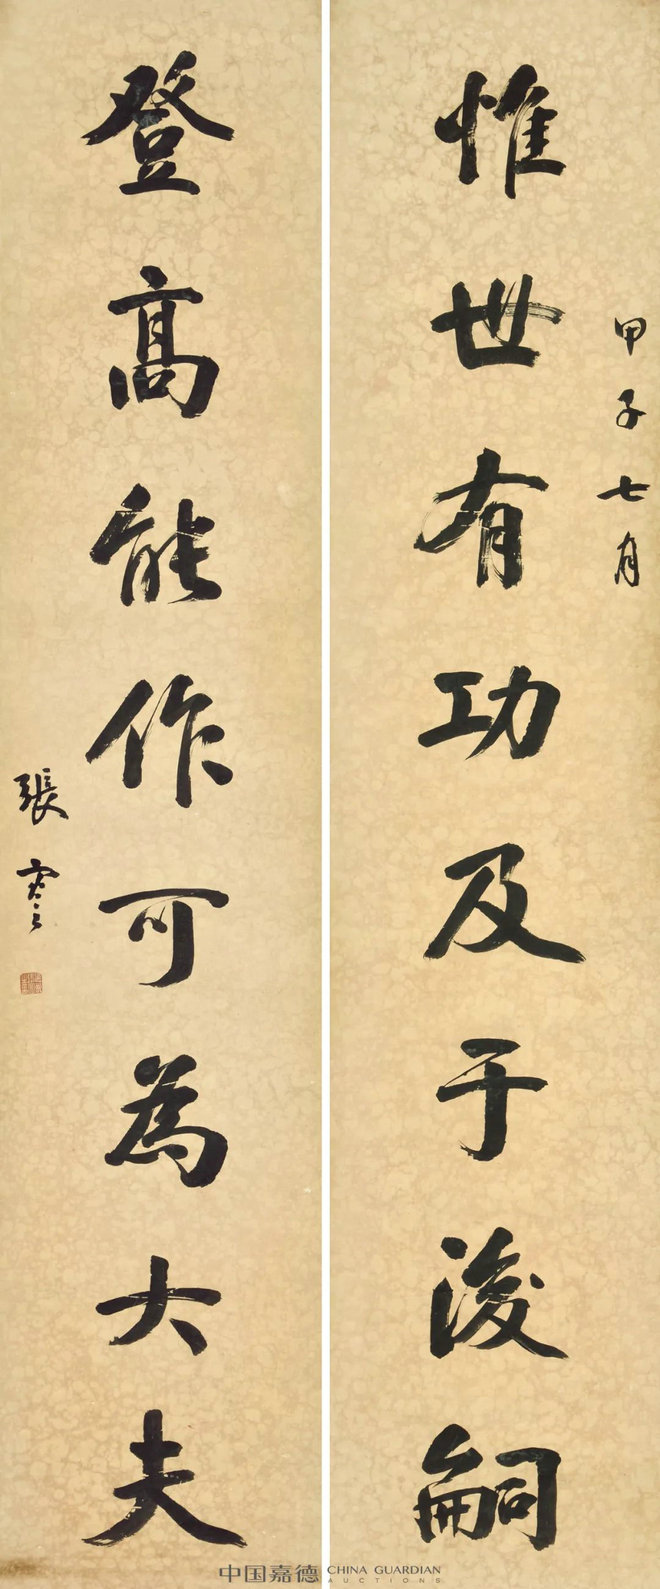 甲子七月
惟世有功及于後嗣
登高能作可為大夫
張謇
中国嘉德 CHINA GUARDIAN
AUCTIONS